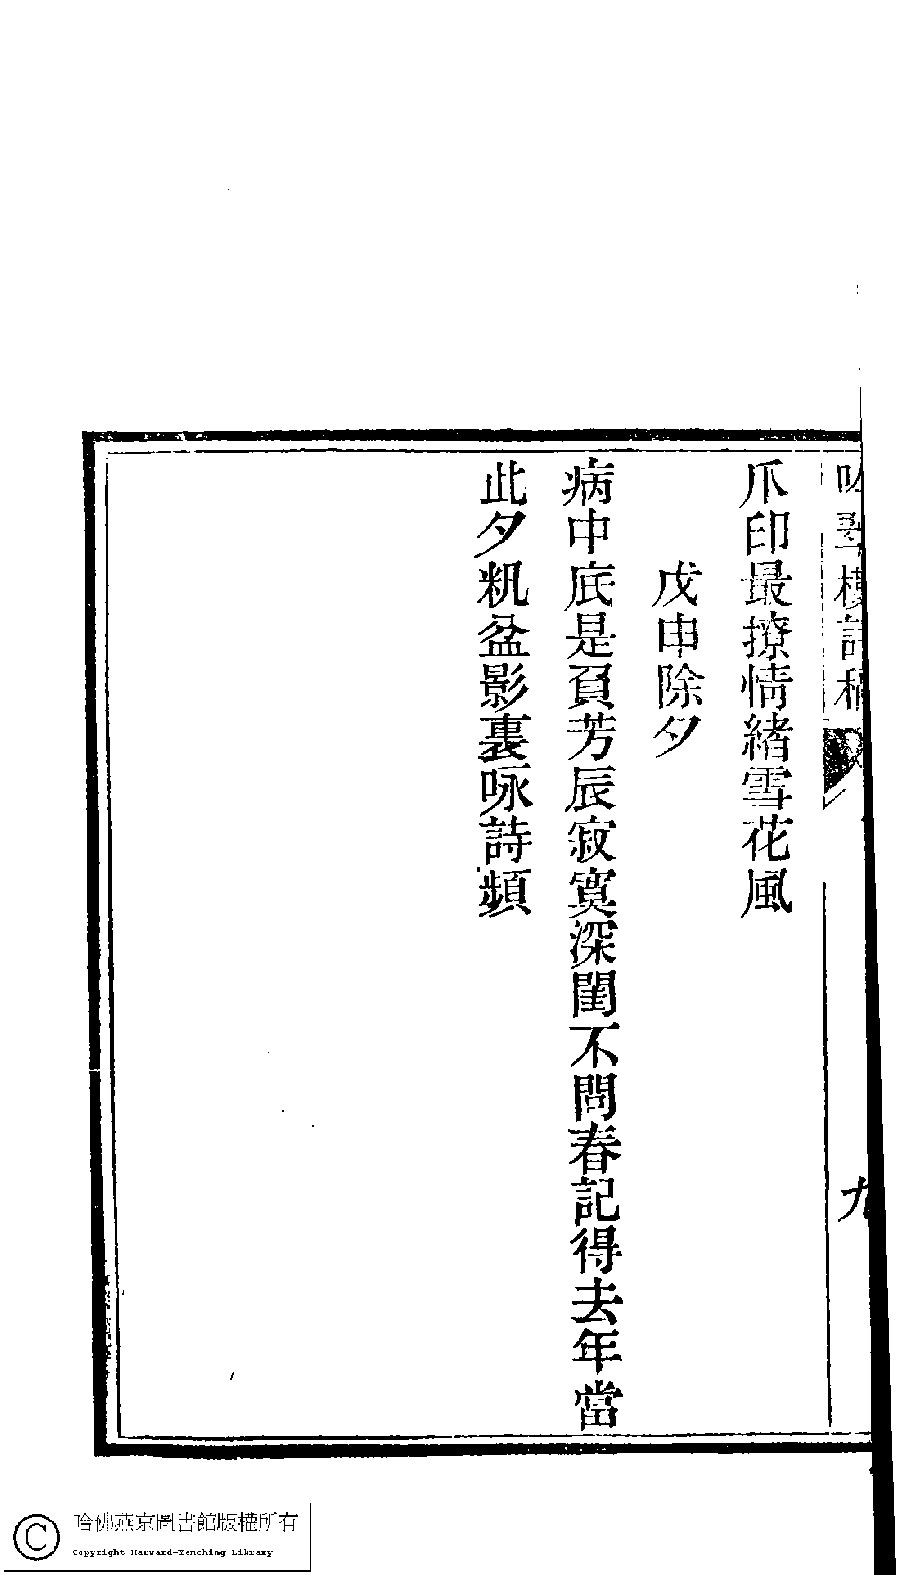 樓詩稿
九
爪印最撩情緒雪花風
戊申除夕
病中底是負芳辰寂寞深閨不問春記得去年當
此夕籸盆影裏咏詩頻
哈佛燕京圖書館版權所有
Copyright Harvard-Yenching Library